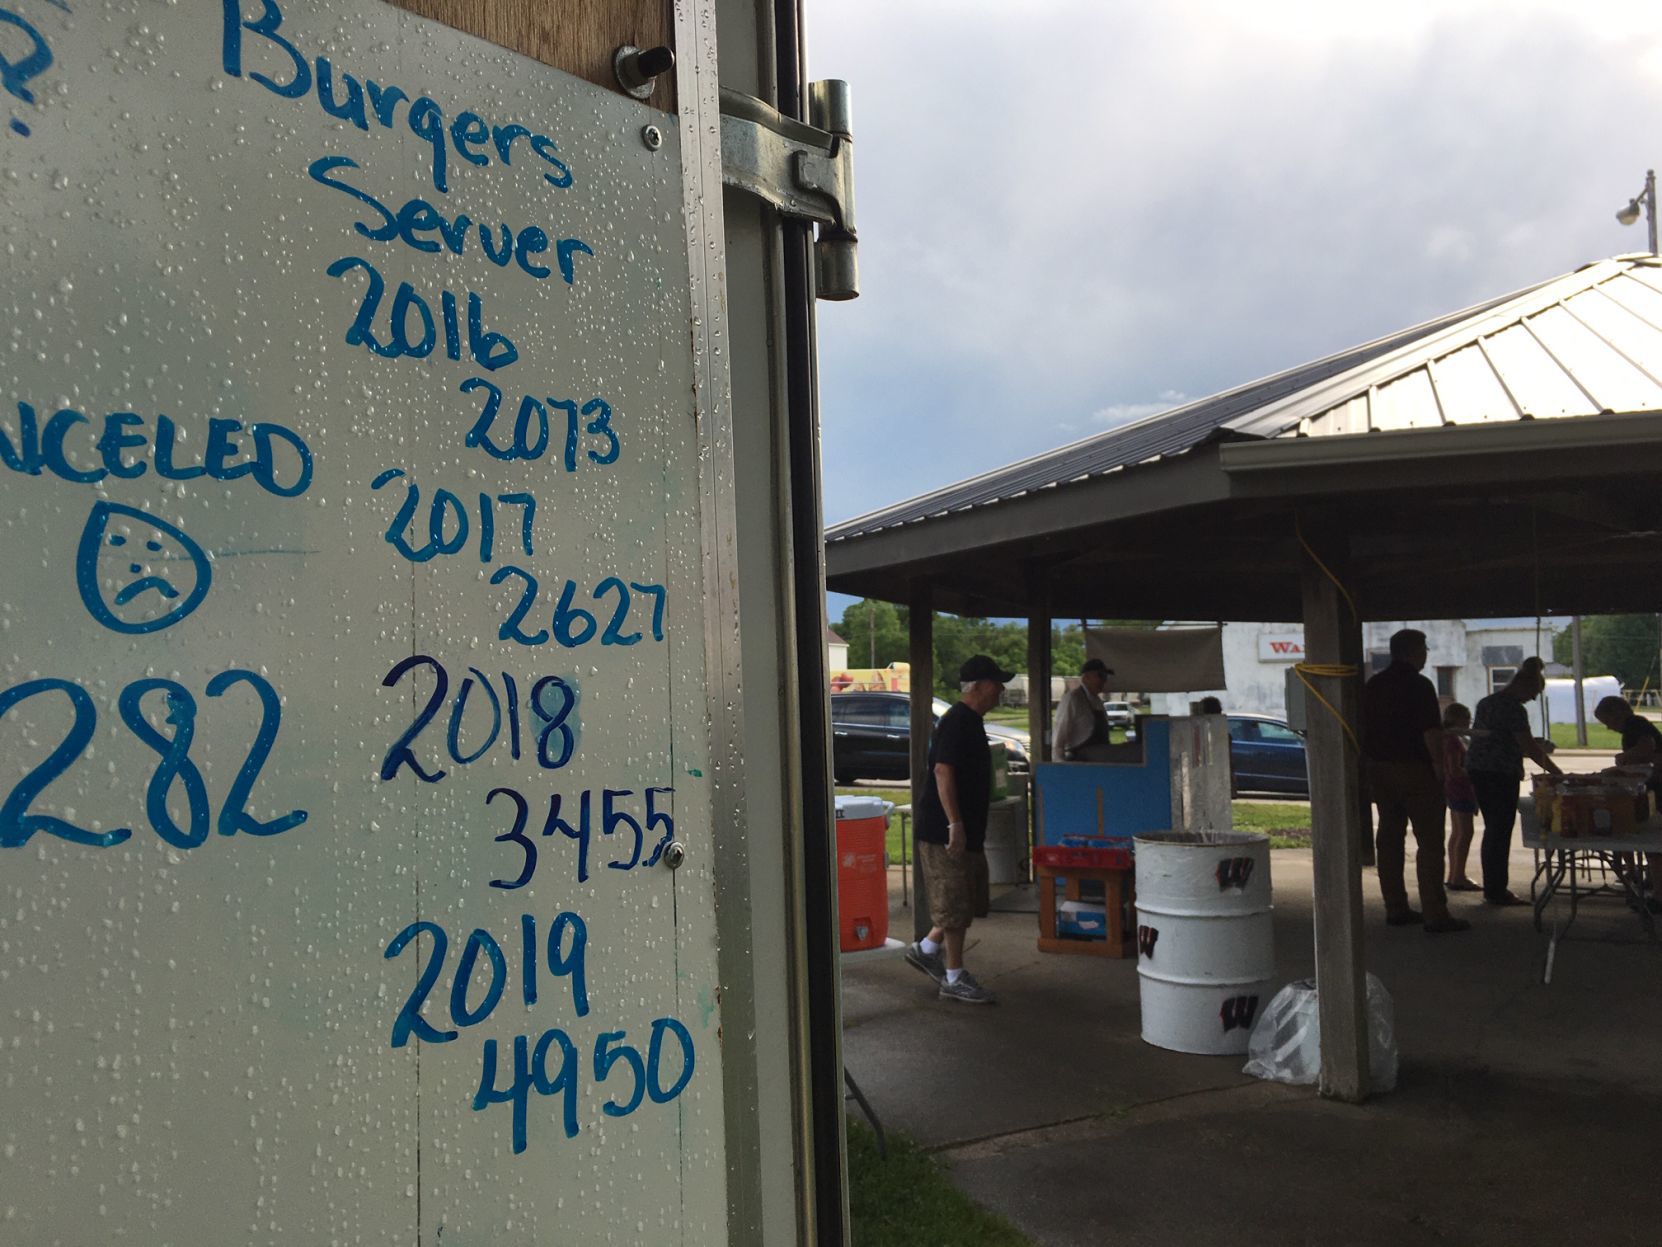 ?
Burgers
Server
2016
2073
NCELED
2017
2627
282
2018
3455
2019
4950
WA
W
W
W